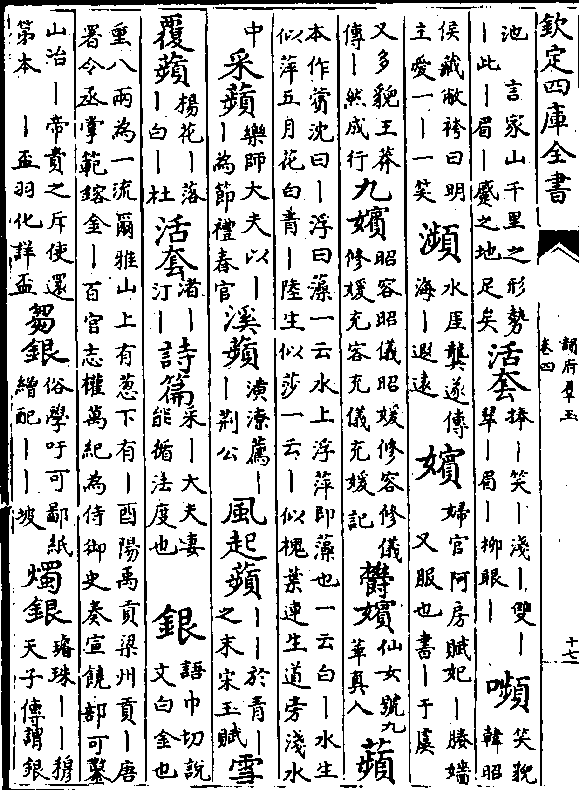 欽定四庫全書
韻府羣玉
卷四
十七
池 言家山千里之形勢
｜此｜眉｜蹙之地足矣
活套
捧｜笑｜淺｜雙｜
翠｜眉｜柳眼｜
嚬
笑貌
韓昭
侯藏敝袴曰明
主愛一｜一笑
瀕
水厓龔遂傳
海｜遐遠
嬪
婦官阿房賦妃｜媵嬙
又服也書｜于虞
又多貌王莽
傳｜然成行
九嬪
昭容昭儀昭媛修容修儀
修媛充容充儀充媛 記
欎嬪
仙女號九
華真人
蘋
本作薲沈曰｜浮曰藻一云水上浮萍即藻也一云白｜水生
似萍五月花白青｜陸生似莎一云｜似槐葉連生道旁淺水
中
采蘋
樂師大夫以｜
｜為節禮春官
溪蘋
潢潦薦｜
｜荆公
風起蘋
｜｜於青｜
之末宋玉賦
雪
覆蘋
楊花｜落
｜白｜杜
活套
渚｜
汀｜
詩篇
采｜大夫妻
能循法度也
銀
語巾切說
文白金也
重八兩為一流爾雅山上有葱下有｜酉陽禹貢梁州貢｜唐
署令丞掌範鎔金｜百官志權萬紀為侍御史奏宣饒部可鑿
山冶｜帝責之斥使還
第本 ｜盃羽化詳盃
芻銀
俗學吁可鄙紙
繒配｜｜坡
燭銀
璿珠｜｜
天子傳謂銀